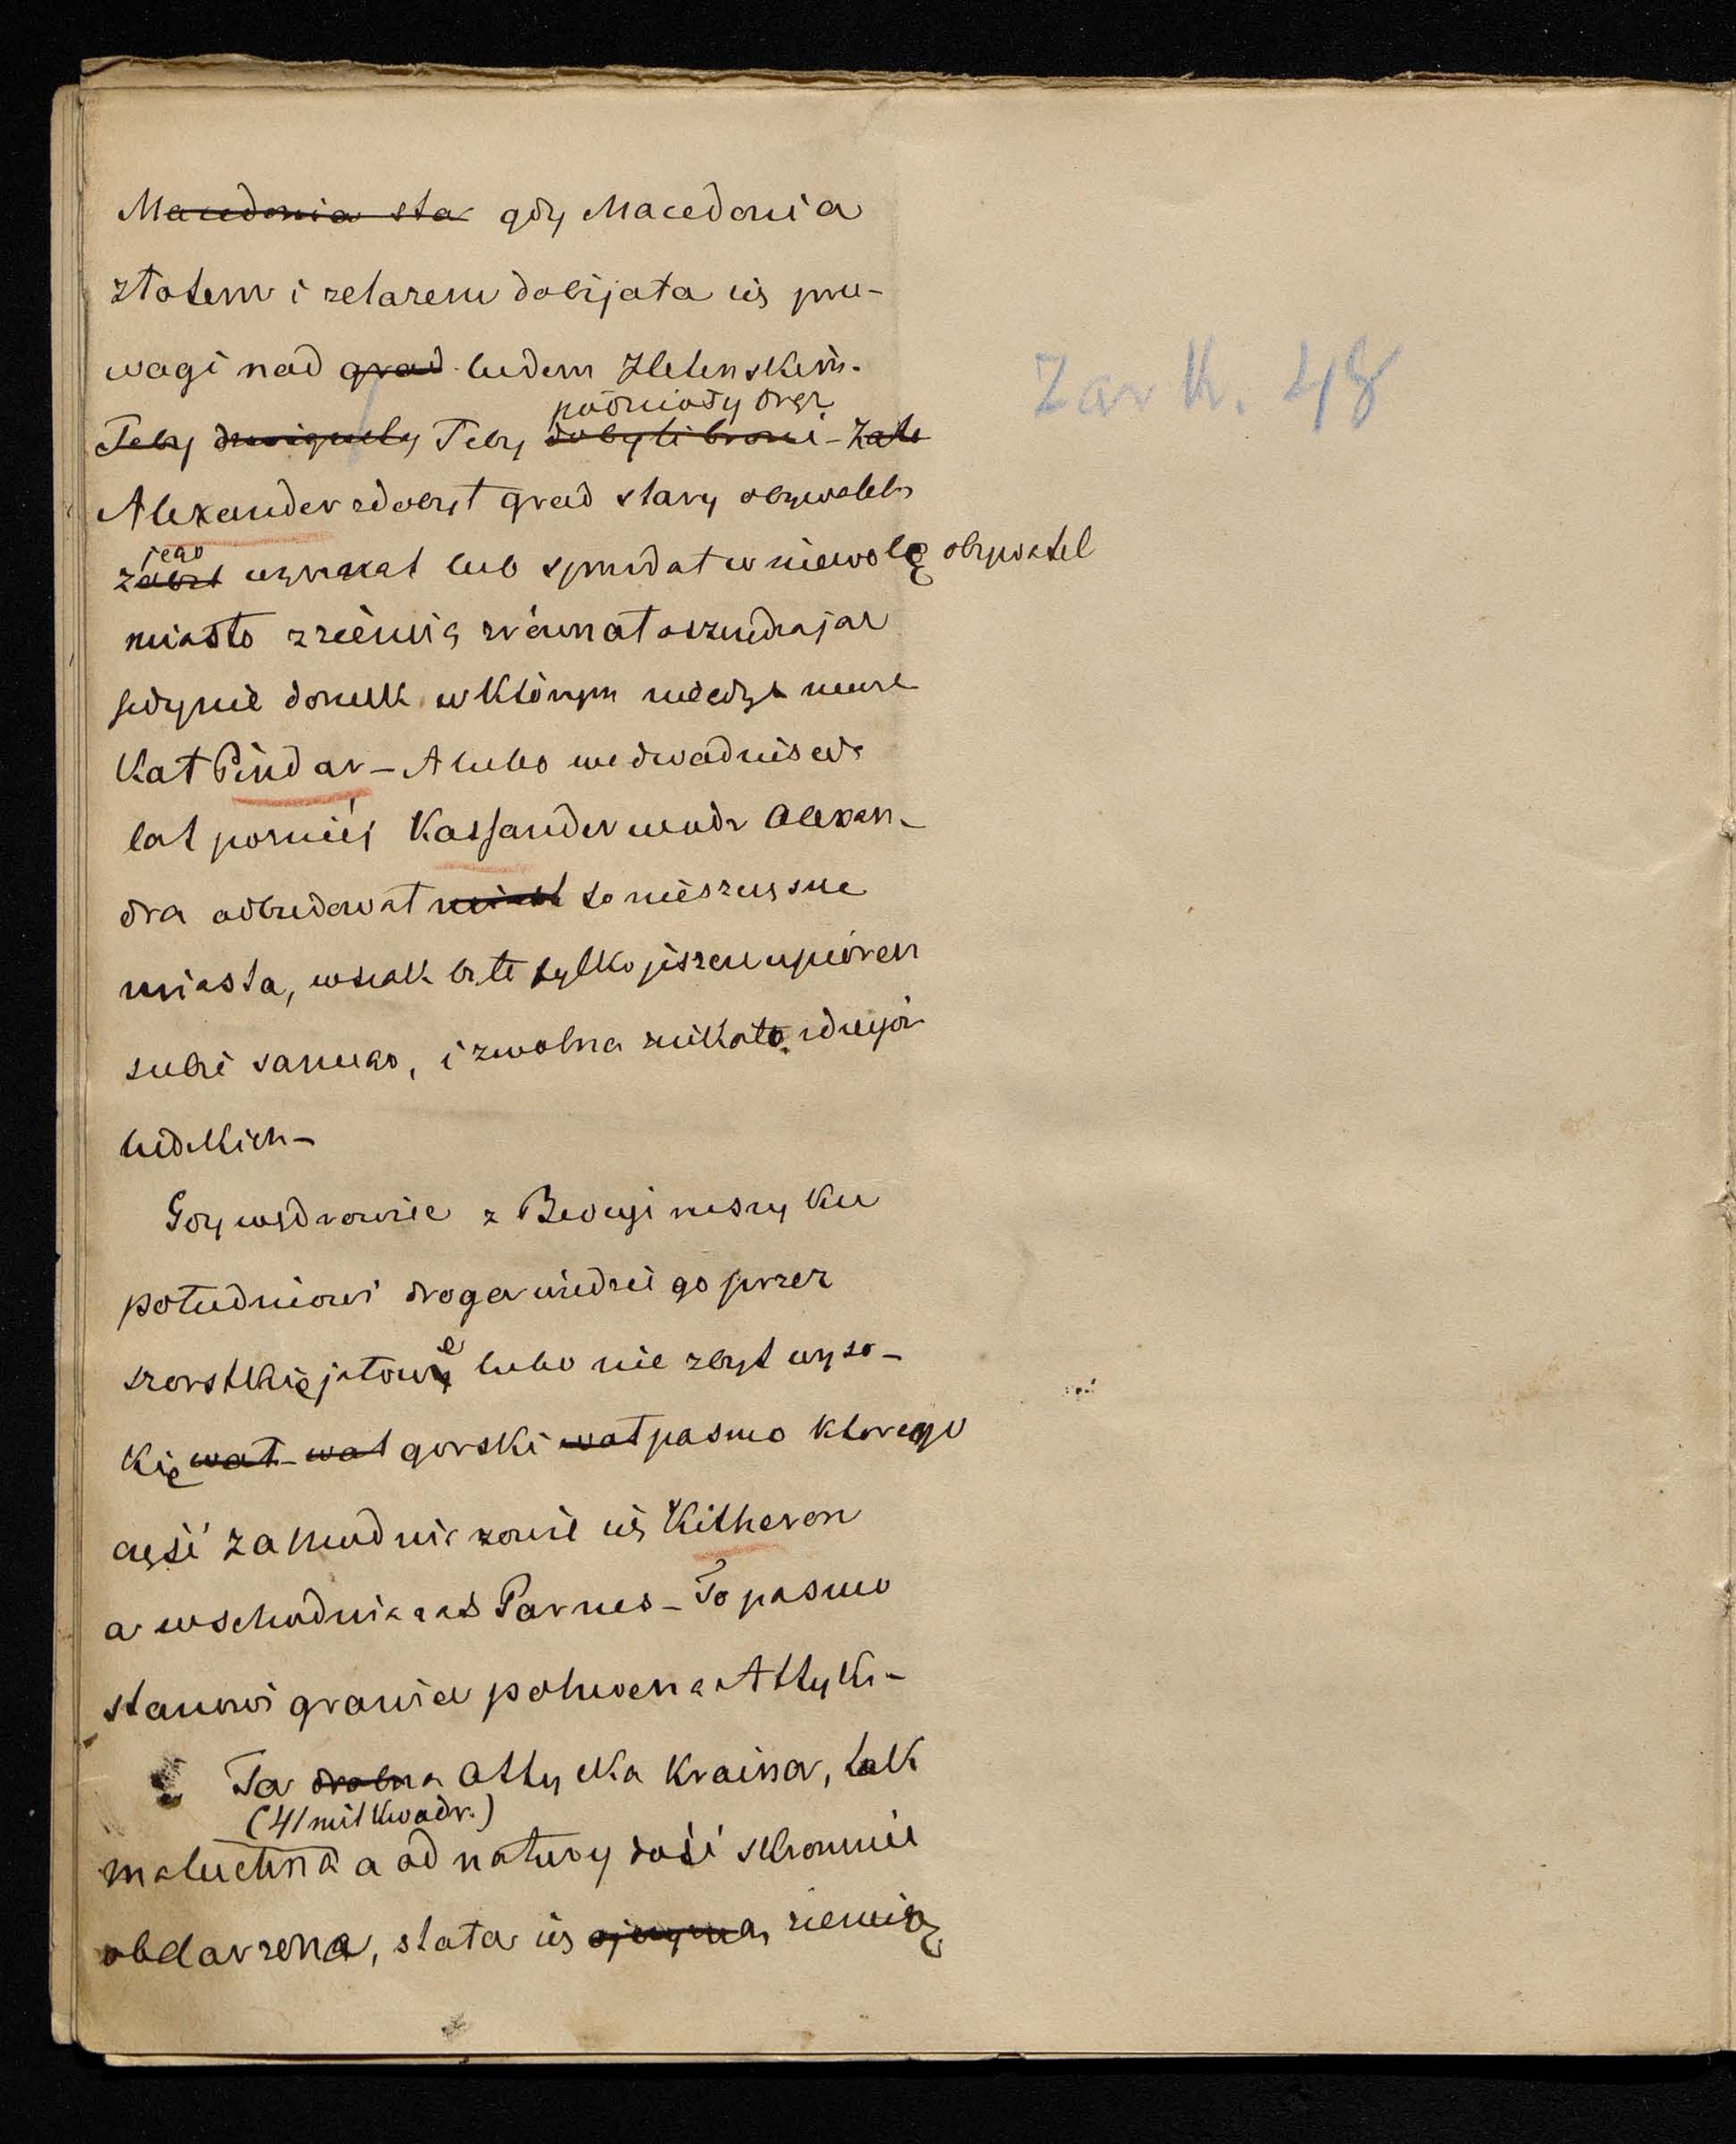 Macedonia sta gdy Macedonia
złotem i żelazem dobijała się prze-
wagi nad grod ludem Hellenskim.
podniosły oręż
Teby dzwignęły Teby dobyli broni - Zate
Alexander zdobył gród stary obywateli
jego
zabił wyrzezał lub sprzedał w niewolę obywatel
miasto z ziemią zrównał oszczędzając
jedynie domek w którym niedyś miesz
kał Pindar - A lubo we dwadzieścia
lat pozniéj Kassander wódz Alexan-
dra odbudował miast to nieszczęsne
miasta, wszak było tylko jeszcze upiorem
siebie samego, i zwolna znikało z dziejów
ludzkich -
Gdy wędrowiec z Beocyi ruszy ku
południowi droga wiedzie go przez
szorstkie jałowe lubo nie zbyt wyso-
kie wał - wał gorski wał pasmo ktorego
część zachodnia zowie się Kitheron
a wschodnia zaś Parnes - To pasmo
stanowi granice połnocna Attyki -
Ta drobna Attycka kraina, tak
(41 mil kwadr.)
maluchna a od natury dość skromnie
obdarzona, stała się ojczyzną ziemią
Zar k. 48